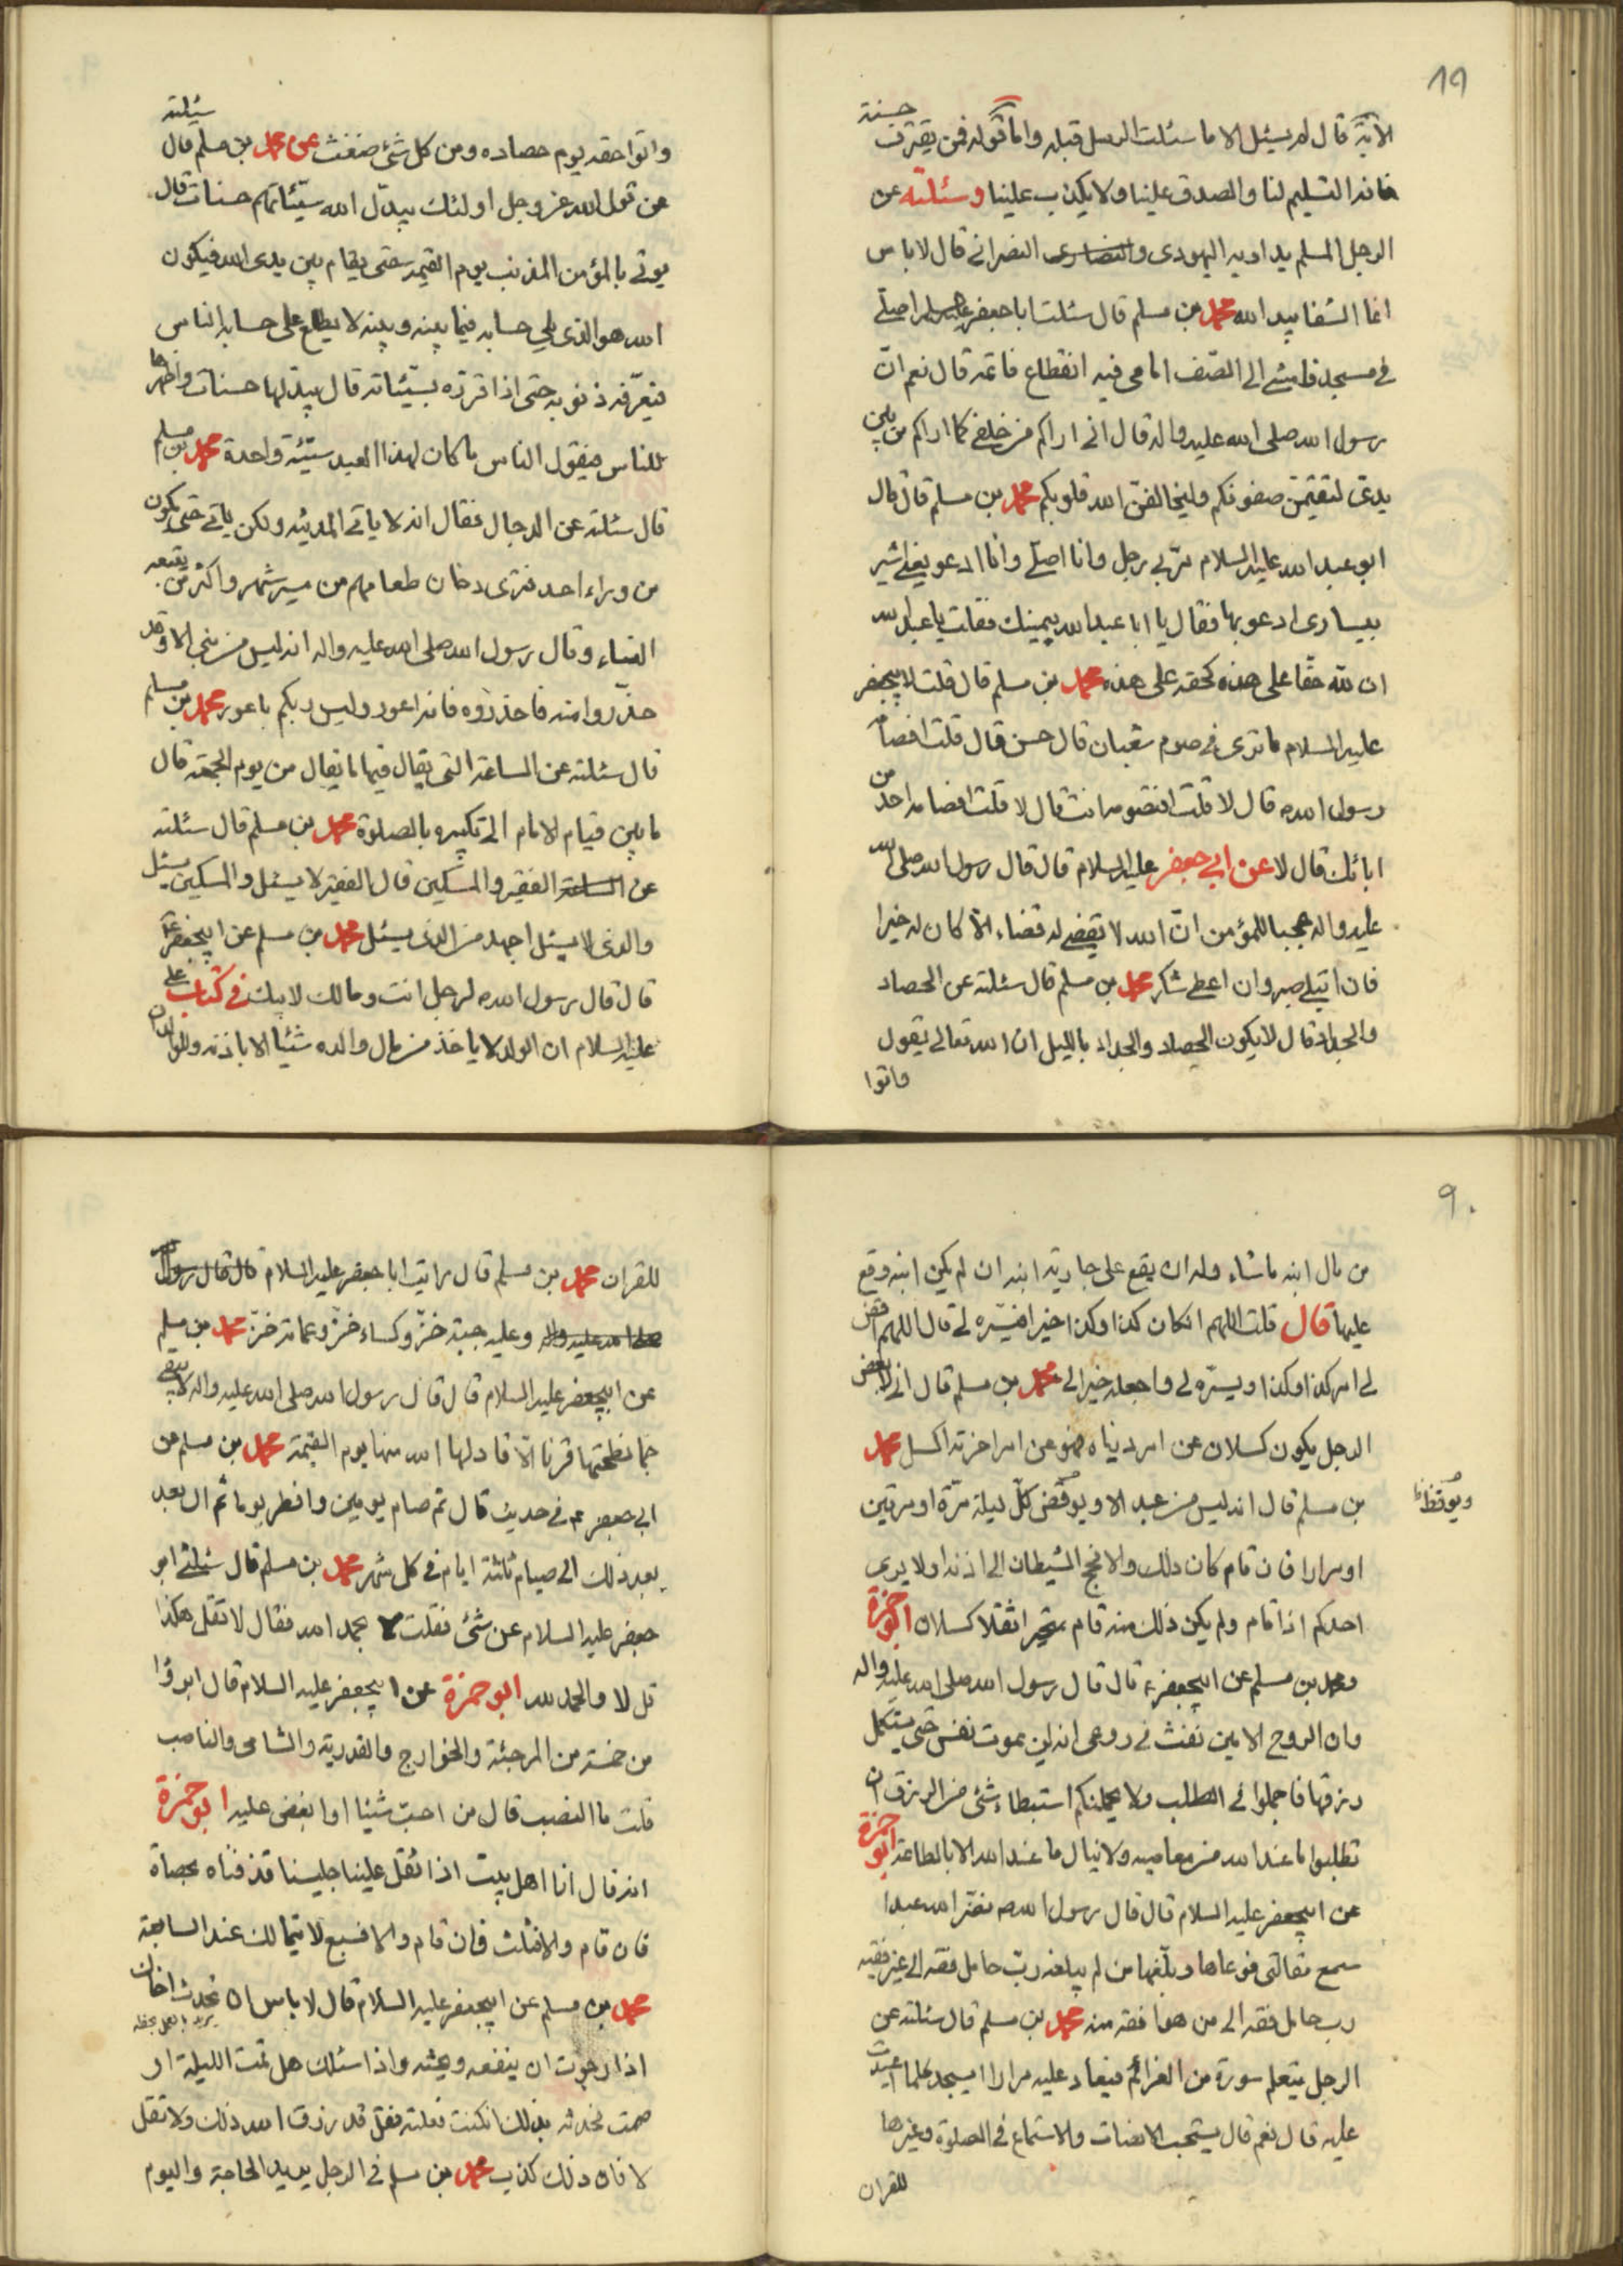 ١٩
الآية قال لم يسئل الا ما سئلت الرسل قبله واما قوله فمن يقترف حسنة
فانه التسليم لنا والصدق علينا ولا يكذب علينا وسئلته عن
الرجل المسلم يداويه اليهودى والنصارى النصرانى قال لا باس
انما الشفا بيد الله محمد بن مسلم قال سئلت ابا جعفر عليه السلم اصلى
فى مسجد فامشى الى الصف امامى فيه انقطاع فاتمه قال نعم انّ
رسول الله صلى الله عليه واله قال انى اراكم من خلفى كما اراكم من بين
يدىّ لتقيمنّ صفوفكم وليخالفنّ الله قلوبكم محمد بن مسلم قال قال
ابو عبد الله عليه السلام مرّ بى رجل وانا اصلى وانا ادعو يعنى اشير
بيسارى ادعو بها فقال يا ابا عبد الله بيمينك فقلت يا عبد الله
ان لله حقا على هذه كحقه على هذه محمد بن مسلم قال قلت لابيجعفر
عليه السلام ما ترى فى صوم شعبان قال حسن قال قلت افصام
رسول الله ص قال لا قلت افتصومه انت قال لا قلت افصامه احد من
ابائك قال لا عن ابى جعفر عليه السلام قال قال رسول الله صلى الله
عليه واله عجبا للمؤمن انّ الله لا يقضى له قضاء الّا كان له خيرا
فان ابتلى صبر وان اعطى شكر محمد بن مسلم قال سئلته عن الحصاد
والجداد قال لا يكون الحصاد والجداد بالليل ان الله تعالى يقول
واتوا
واتوا حقه يوم حصاده ومن كل شئ ضغث عن محمد بن مسلم قال سئلته
عن قول الله عز وجل اولئك يبدّل الله سيّئاتهم حسنات قال
يوتى بالمؤمن المذنب يوم القيمة حتى يقام بين يدى الله فيكون
الله هو الذى يلى حسابه فيما بينه وبينه لا يطلع على حسابه الناس
فيعرّفه ذنوبه حتى اذا اقرّه بسيّئاته قال يبدّلها حسنات واظهرها
للناس فيقول الناس ما كان لهذا العبد سيّئة واحدة محمد بن مسلم
قال سئلته عن الدجال فقال انه لا ياتى المدينه ولكن ياتى حتى يكون
من وراء احد فترى دخان طعامهم من مسير شهر واكثر من يتبعه
النساء وقال رسول الله صلى الله عليه واله انه ليس من نبى الا وقد
حذّروا منه فاحذروه فانه اعور وليس ربكم باعور محمد بن مسلم
قال سئلته عن الساعة التى يقال فيها ما يقال من يوم الجمعة قال
ما بين قيام الامام الى تكبيره بالصلوة محمد بن مسلم قال سئلته
عن الساعة الفقير والمسكين قال الفقير لا يسئل والمسكين يسئل
والذى لا يسئل اجهد من الذى يسئل محمد بن مسلم عن ابيجعفر ع
قال قال رسول الله ص لرجل انت ومالك لابيك فى كتاب على
عليه السلام ان الولد لا ياخذ من مال والده شئيا الا باذنه وللوالد ان
٩٠
من مال ابنه ما شاء وله ان يقع على جارية ابنه ان لم يكن ابنه وقع
عليها قال قلت اللهم انكان كذا وكذا خيرا فيسّره لى قال اللهم اقض
لى امر كذا وكذا ويسّره لى واجعله خيرا لى محمد بن مسلم قال انى لابغض
الرجل يكون كسلان عن امر دنياه فهو عن امر اخرته اكسل محمد
بن مسلم قال انه ليس من عبد الا ويوقض كلّ ليلة مرّة او مرتين
ويوقظ ظ
او مرارا فان قام كان ذلك والا فحج الشيطان الى اذنه اولا يرى
احدكم اذا قام ولم يكن ذلك منه قام متخثرا ثقلا كسلان ابو حمزة
ومحمد بن مسلم عن ابيجعفر ع قال قال رسول الله صلى الله عليه واله
وان الروح الامين نفث فى روعى انه لن يموت نفس حتى يستكمل
رزقها فاجملوا فى الطلب ولا يحملنكم استبطاء شئى من الرزق ان
تطلبوا ما عند الله من معاصيه ولا ينال ما عند الله الا بالطاعة ابو حمزة
عن ابيجعفر عليه السلام قال قال رسول الله ص نضّر الله عبدا
سمع مقالتى فوعاها وبلّغها من لم يبلغه ربّ حامل فقه الى غير فقيه
رب حامل فقه الى من هو افقه منه محمد بن مسلم قال سئلته عن
الرجل يتعلم سورة من العزائم فيعاد عليه مرارا ايسجد كلما اعيدت
عليه قال نعم قال يستحب الانصات والاستماع فى الصلوة وغيرها
للقران
للقران محمد بن مسلم قال رايت ابا جعفر عليه السلام قال قال رسول الله
صلى الله عليه واله وعليه جبة خزّ وكساء خزّ وعمامة خزّ محمد بن مسلم
عن ابيجعفر عليه السلام قال قال رسول الله صلى الله عليه واله لا يبقى
جما نطحتها قرنا الّا قاد لها الله منها يوم القيمة محمد بن مسلم عن
ابى جعفر ع فى حديث قال ثم صام يومين وافطر يوما ثم ال بعد
بعد ذلك الى صيام ثلثة ايام فى كل شهر محمد بن مسلم قال سئلنى ابو
جعفر عليه السلام عن شئ فقلت لا بحمد الله فقال لا تقل هكذا
قل لا والحمد لله ابو حمزة عن ابيجعفر عليه السلام قال ابروا
من خمسة من المرجئة والخوارج والقدرية والشامى والناصب
قلت ما النصب قال من احبّ شيئا او ابغض عليه ابو حمزة
انه قال انا اهل بيت اذا ثقل علينا جليسنا قذفناه بحصاة
فان قام والا فثلث فان قام والا فسبع لا يتمالك عند السابعة
محمد بن مسلم عن ابيجعفر عليه السلام قال لا باس ان تحدث اخاك
اذا رجوت ان ينفعه ويحثه واذا سئلك هل قمت الليلة او
صمت فحدثه بذلك انكنت فعلته فقل قد رزق الله ذلك ولا تقل
لا فان ذلك كذب محمد بن مسلم فى الرجل يريد الحاجة واليوم